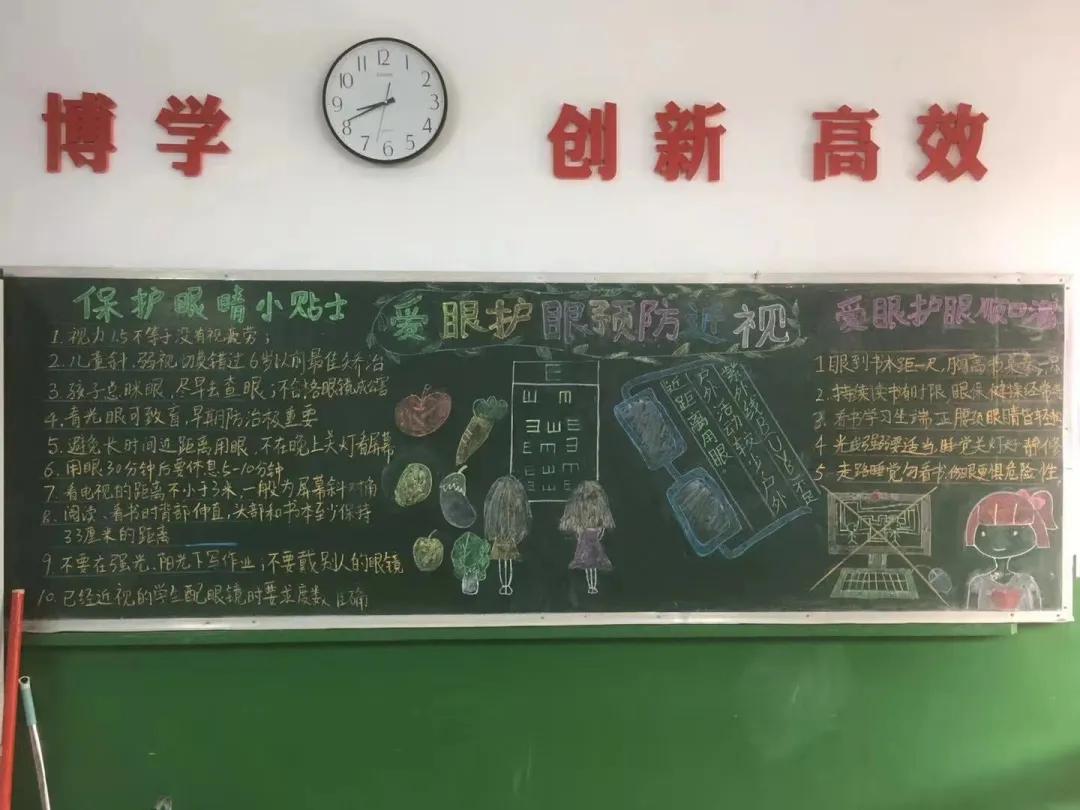 博学 创新 高效
12 1 2 3 4 5 6 7 8 9 10 11
保护眼睛小贴士
1.视力1.5不等于没有视疲劳；
2.儿童斜、弱视切莫错过6岁以前最佳矫治
3.孩子总眯眼，尽早去查眼；不合格眼镜成公害
4.青光眼可致盲，早期防治极重要
5.避免长时间近距离用眼，不在晚上关灯看屏幕
6.用眼30分钟后要休息5-10分钟
7.看电视的距离不小于3米，一般为屏幕斜对角
8.阅读、看书时背部伸直，头部和书本至少保持
33厘米的距离
9.不要在强光、阳光下写作业；不要戴别人的眼镜
10.已经近视的学生配眼镜时要求度数正确
爱眼护眼预防近视
E
E m
E E E
E m E
E m E
近距离用眼
户外活动较少户外
紫外线BUVB不足
爱眼护眼顺口溜
1眼到书本距一尺，胸离书桌
2.持续读书有时限 眼保健操经常
3.看书学习坐端正 眼睛
4 光线强弱要适当 睡觉关灯
5.走路睡觉勿看书 危险性